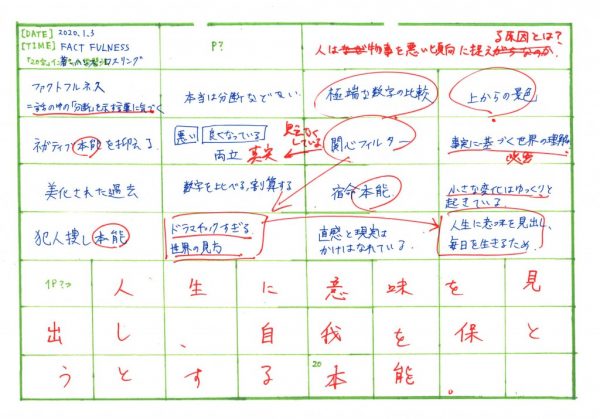 [DATE] 2020.1.3
[TIME] FACT FULNESS
P?
人は物事を悪い傾向に捉え
る原因とは?
ファクトフルネス
=話の中の「分断」を示す言葉に気づく
本当は分断などない
極端な数字の比較
上からの景色
ネガティブ本能を抑える
悪い 良くなっている
両立 真実
見えなく
している
関心フィルター
事実に基づく世界の理解
美化された過去
数字を比べる、割算する
宿命本能
小さな変化はゆっくりと
起きている.
犯人捜し本能
ドラマチックすぎる
世界の見方
直感と現実は
かけはなれている.
人生に意味を見出し、
毎日を生きるため.
1P?→
人生に意味を見
出し、自我を保と
うとする本能。
20